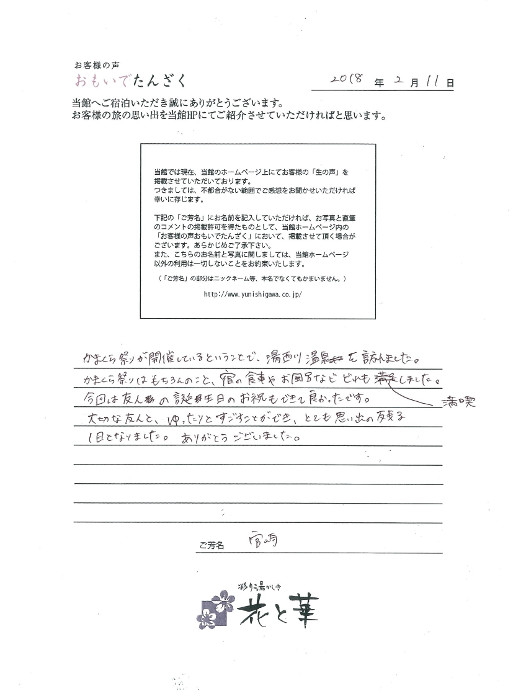 お客様の声
おもいでたんざく
2018年2月11日
当館へご宿泊いただき誠にありがとうございます。
お客様の旅の思い出を当館HPにてご紹介させていただければと思います。
当館では現在、当館のホームページ上にてお客様の「生の声」を
掲載させていただいております。
つきましては、不都合がない範囲でご感想をお聞かせいただければ
幸いに存じます。
下記の「ご芳名」にお名前を記入していただければ、お写真と直筆
のコメントの掲載許可を得たものとして、当館ホームページ内の
「お客様の声おもいでたんざく」において、掲載させて頂く場合が
ございます。あらかじめご了承下さい。
また、こちらのお名前と写真に関しましては、当館ホームページ
以外の利用は一切しないことをお約束いたします。
（「ご芳名」の部分はニックネーム等、本名でなくてもかまいません。）
http://www.yunishigawa.co.jp/
かまくら祭りが開催しているということで、湯西川温泉を訪れました。
かまくら祭りはもちろんのこと、宿の食事やお風呂など どれも満足しました。
満喫
今回は友人の誕生日のお祝もできて良かったです。
大切な友人と、ゆったりとすごすことができ、とても思い出の残る
1日となりました。ありがとうございました。
ご芳名
花と華